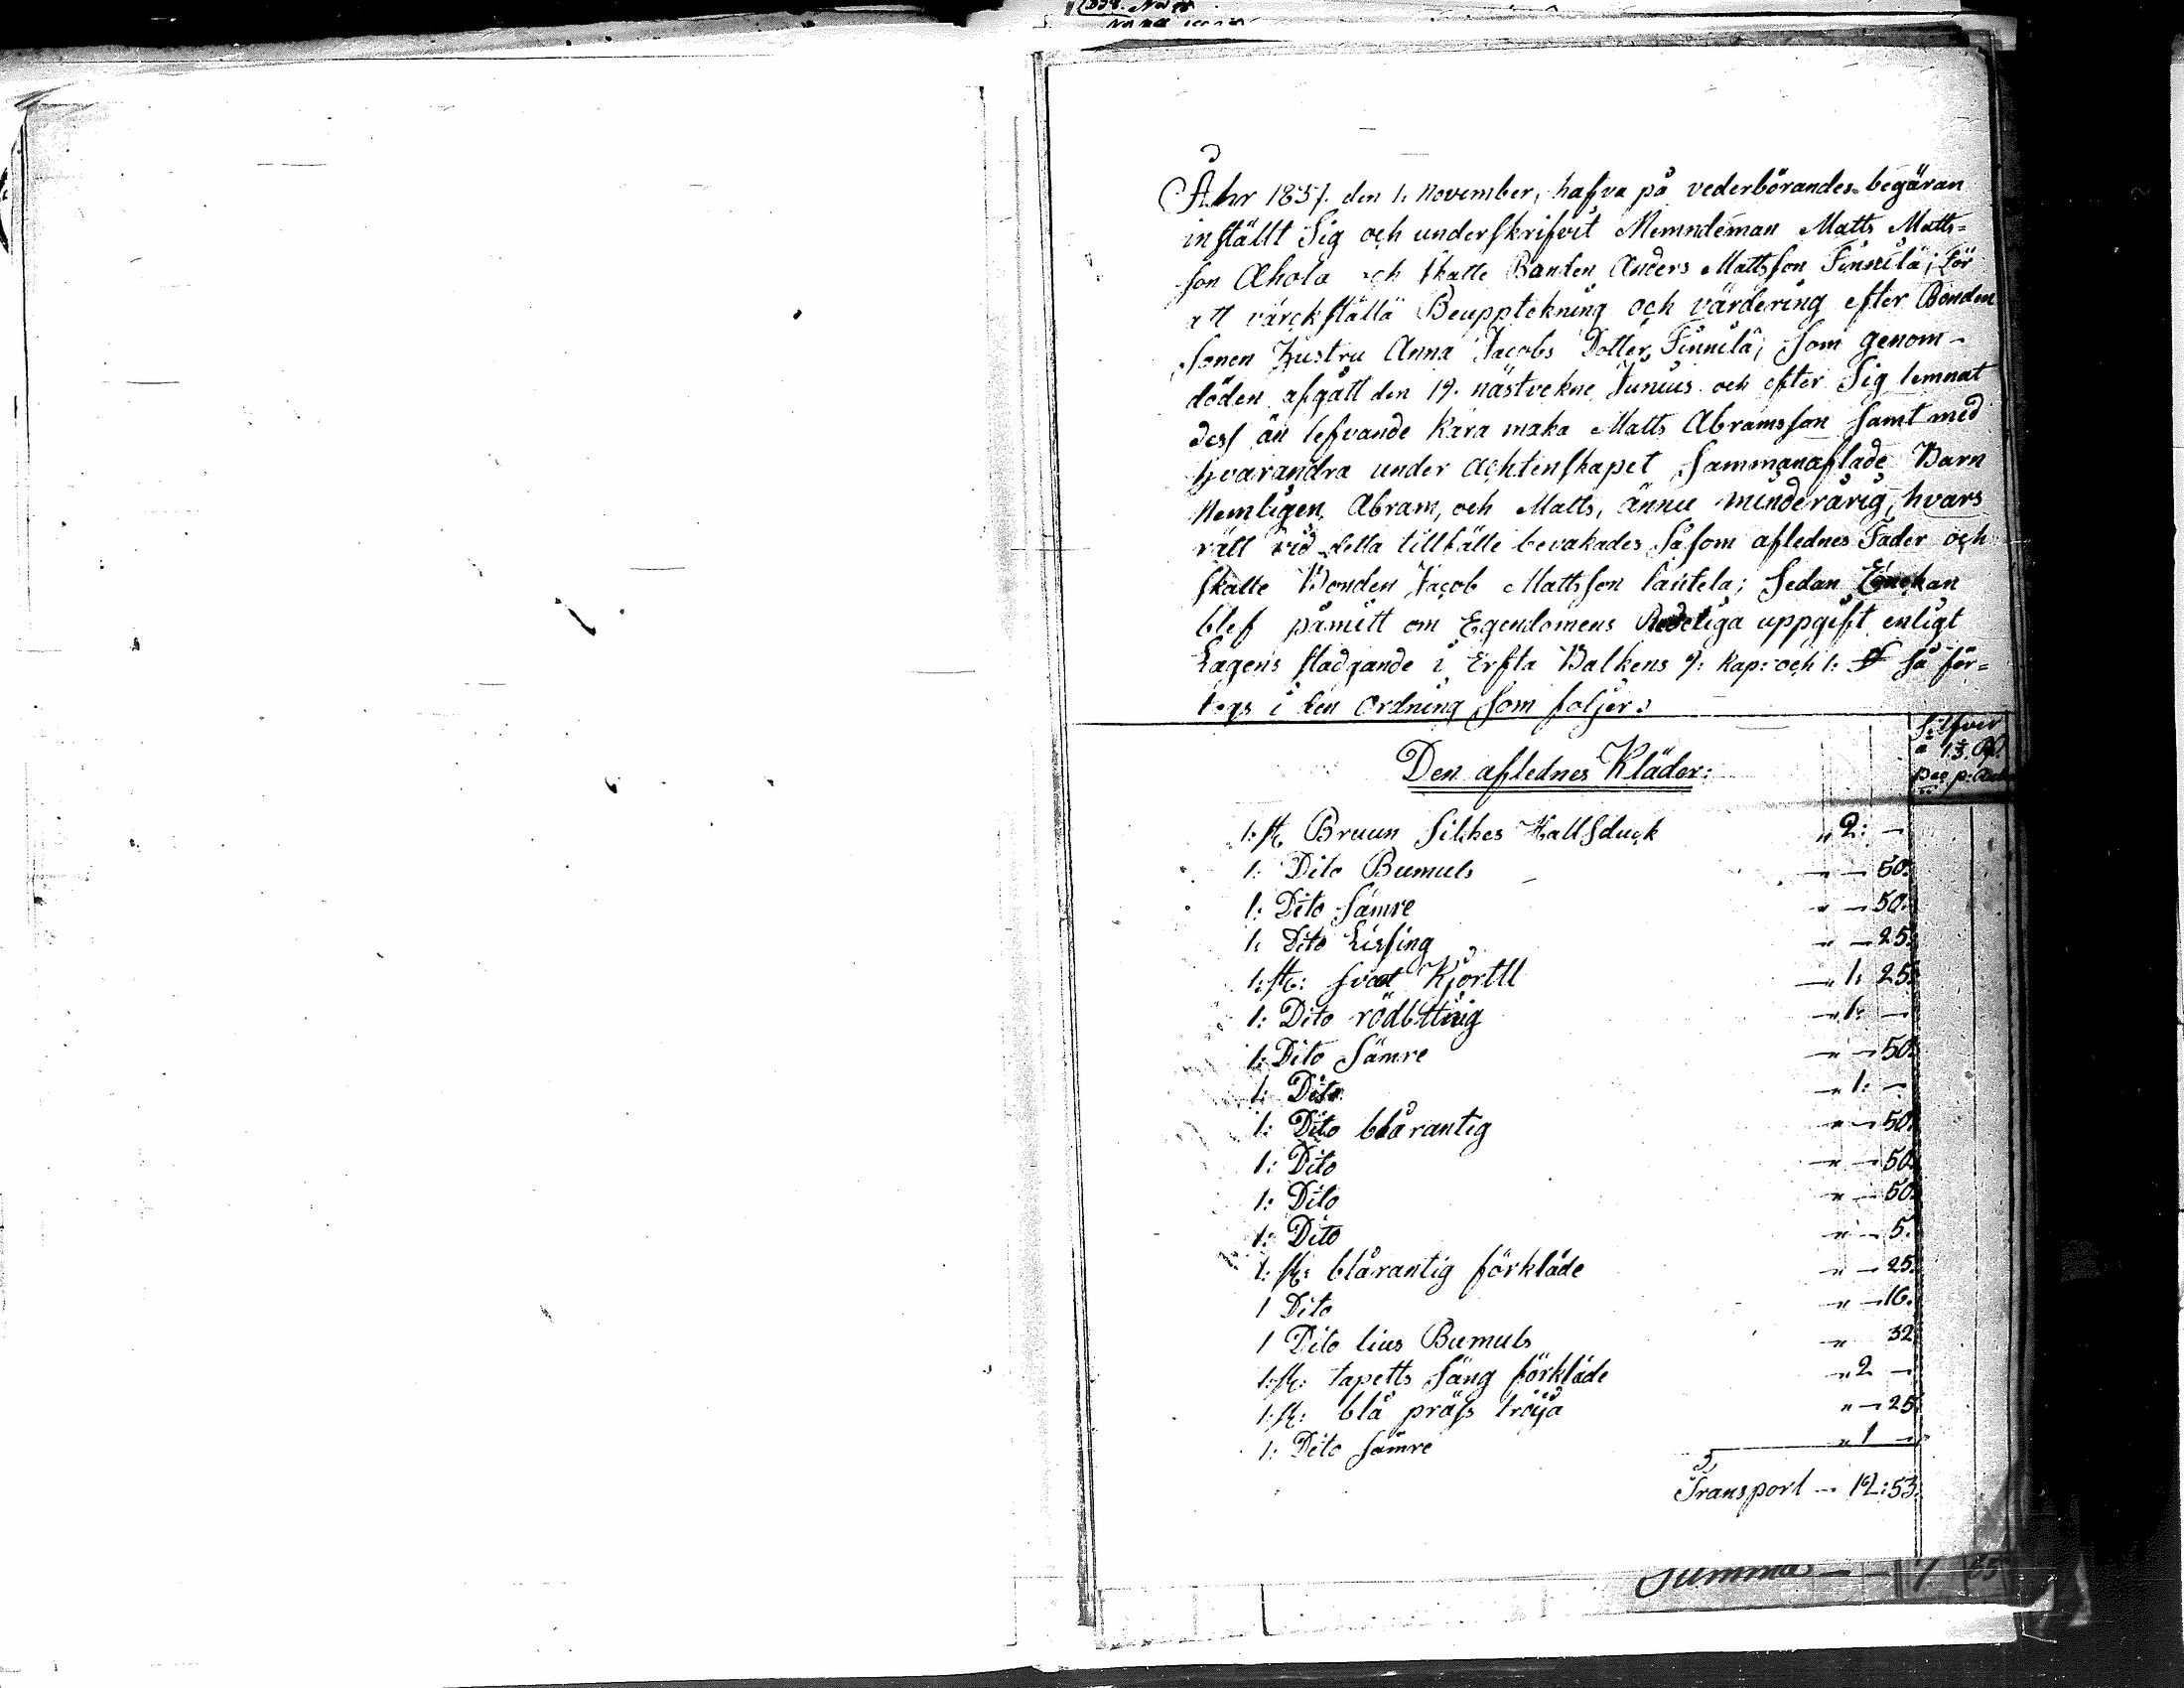 Åhr 1837. den 1. November, hafva på vederbörandes begäran
instält Sig och underskrifvit Nemndeman Matts Matts=
son Ahola och Skatte Bonden Anders Mattsson Finnilä; För
att värckställä Beupptekning och värdering efter Bonden
Sonen Hustru Anna Jacobs Dotter Finnilä; Som genom-
döden afgått den 19. nästvekne Junius och efter Sig lemnat
dess än lefvande kära maka Matts Abramsson Samt med
hvarandra under Achtenskapet Sammanaflade Barn
Nemligen Abram, och Matts, ännu minderårig, hvars
rätt vid detta tillfälle bevakades Såsom aflednes Fader och
skatte Bonden Jacob Mattsson Santela; Sedan Enckan
blef påmitt om Egendomens Redeliga uppgift enligt
Lagens stadgande i Erfta Balkens 9: Kap: och 1: § så för=
togs i den Ordning Som foljer:
Silfver
Den aflednes Kläder:
1: st Bruun Silkes Hallsduck " 2: —
1: Dito Bumuls — — 50:
1: Dito Sämre " — 50:
1: Dito " — 25:
1: st: svart Kjortll — " 1: 25:
1: Dito — " 1: —
1: Dito Sämre — " — 50:
1: Dito — " 1: —
1: Dito blårantig " — 50:
1: Dito — " — 50:
1: Dito " — 50:
1: Dito " — 5:
1: st: blårantig förkläde " — 25:
1 Dito — " — 16.
1 Dito lius Bumuls — " 32
1: st: tapetts Säng förkläde — " 2 —
1: st: blå präss tröija " — 25:
1: Dito Sämre " 1 —
Transport — 12:53:
Summa — — 7